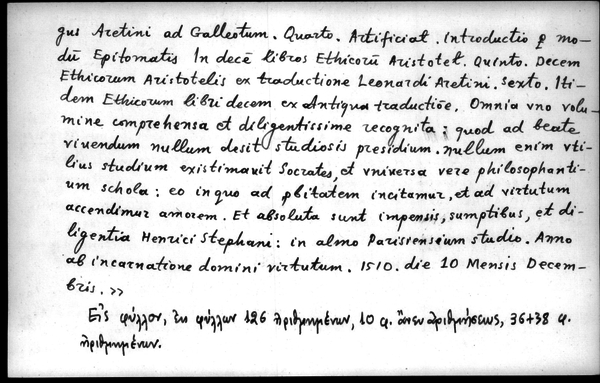 gus Aretini ad Galleotum. Quarto. Artificiat. Introductio ꝑ mo-
dū Epitomatis In decē libros Ethicorū Aristotel. Quinto. Decem
Ethicorum Aristotelis ex traductione Leonardi Aretini. Sexto. Iti-
dem Ethicorum libri decem ex Antiqua traductiōe. Omnia vno volu-
mine comprehensa et diligentissime recognita: quod ad beate
viuendum nullum desit studiosis presidium. nullum enim vti-
lius studium existimauit Socrates, et vniuersa vere philosophanti-
um schola: eo in quo ad pbitatem incitamur, et ad virtutum
accendimur amorem. Et absoluta sunt impensis, sumptibus, et di-
ligentia Henrici Stephani: in almo Parisiensium studio. Anno
ab incarnatione domini virtutum. 1510. die 10 Mensis Decem-
bris. »
Εἰς φύλλον, ἐκ φύλλων 126 ἠριθμημένων, 10 φ. ἄνευ ἀριθμήσεως, 36+38 φ.
ἠριθμημένων.